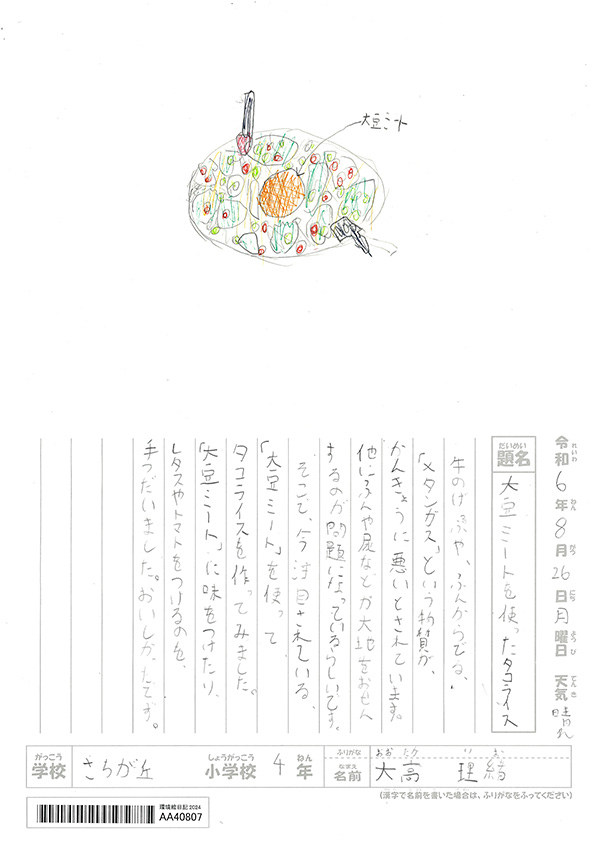 大豆ミート
令和6年8月26日月曜日 天気 晴れ
れいわ ねん がつ にち ようび てんき
だいめい
題名
大豆ミートを使ったタコライス
牛のげっぷや、ふんからでる、
「メタンガス」という物質が、
かんきょうに悪いとされています。
他にふんや尿などが大地をおせん
するのが問題になっているらしいです。
そこで、今注目されている、
「大豆ミート」を使って
タコライスを作ってみました。
「大豆ミート」に味をつけたり、
レタスやトマトをつけるのを、
手つだいました。おいしかったです。
がっこう しょうがっこう ねん ふりがな おお たか り お
学校 きらが丘 小学校 4年
なまえ
名前 大高 理緒
(漢字で名前を書いた場合は、ふりがなをふってください)
環境絵日記2024
AA40807